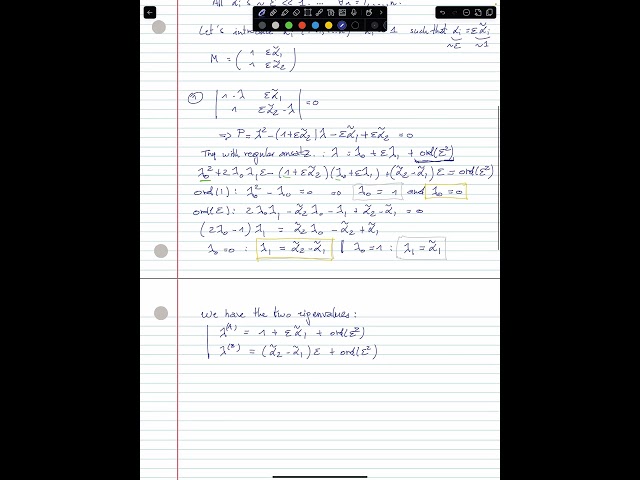 All α̃ᵢ's ~ ε << 1, ...
Let's introduce ... such that αᵢ = εα̃ᵢ
~ε ~1
M = ( 1 εα̃₁
1 εα̃₂ )
① | 1-λ εα̃₁
1 εα̃₂-λ | = 0
⇒ P = λ² - (1+εα̃₂)λ - εα̃₁ + εα̃₂ = 0
Try with regular ansatz.. : λ = λ₀ + ελ₁ + ord(ε²)
λ₀² + 2λ₀λ₁ε - (1+εα̃₂)(λ₀+ελ₁) + (α̃₂-α̃₁)ε = ord(ε²)
ord(1): λ₀² - λ₀ = 0 ⇒ λ₀ = 1 and λ₀ = 0
ord(ε): 2λ₀λ₁ - α̃₂λ₀ - λ₁ + α̃₂ - α̃₁ = 0
(2λ₀-1)λ₁ = α̃₂λ₀ - α̃₂ + α̃₁
λ₀=0 : λ₁ = α̃₂-α̃₁ | λ₀=1 : λ₁ = α̃₁
We have the two eigenvalues:
λ⁽¹⁾ = 1 + εα̃₁ + ord(ε²)
λ⁽²⁾ = (α̃₂-α̃₁)ε + ord(ε²)